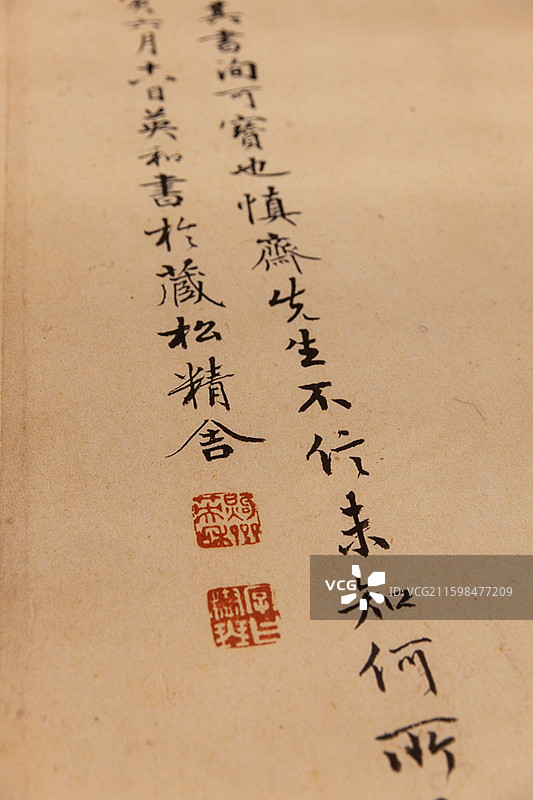 其書洵可寶也慎齋先生不信未知何所
寅六月十六日英和書於藏松精舍
VCG
ID:VCG211598477209